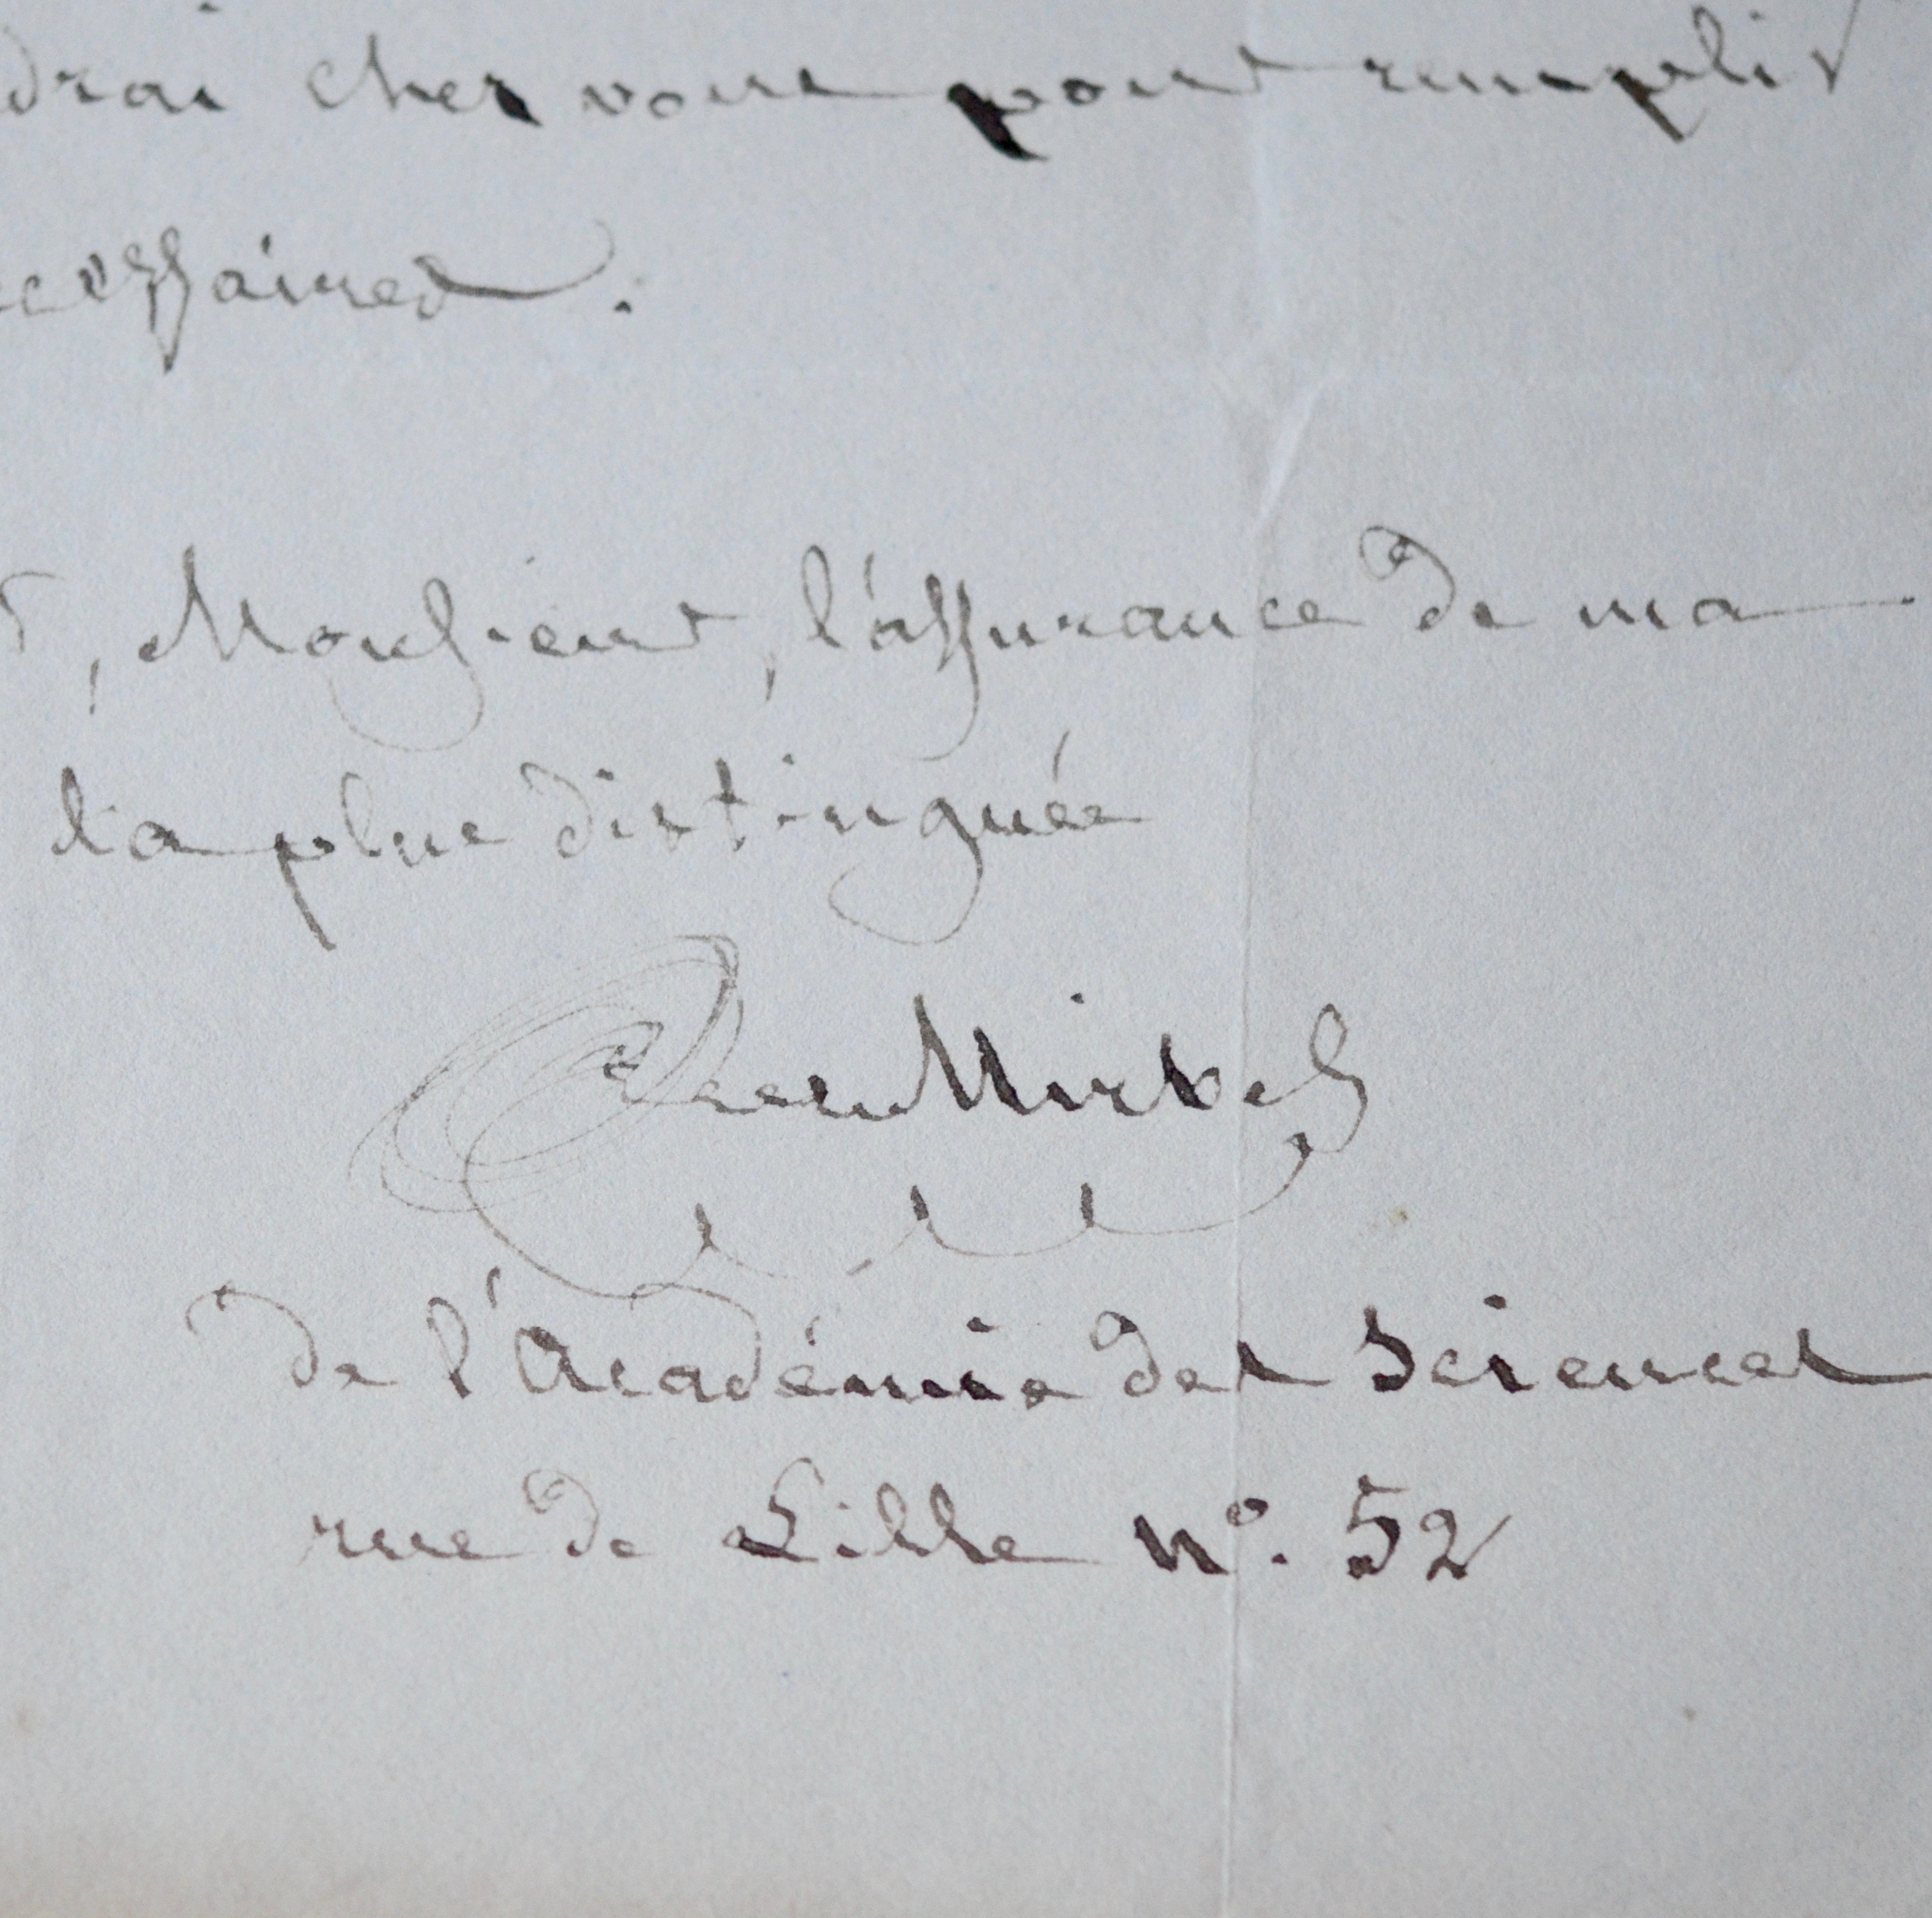 drai chez vous pour remplir
cessaires.
, Monsieur, l'assurance de ma
la plus distinguée
Mirbel
de l'Académie des Sciences
rue de Lille n°. 52